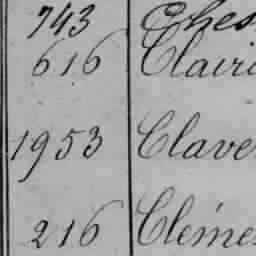 743 Ches
616 Clairi
1953 Clave
216 Cléme